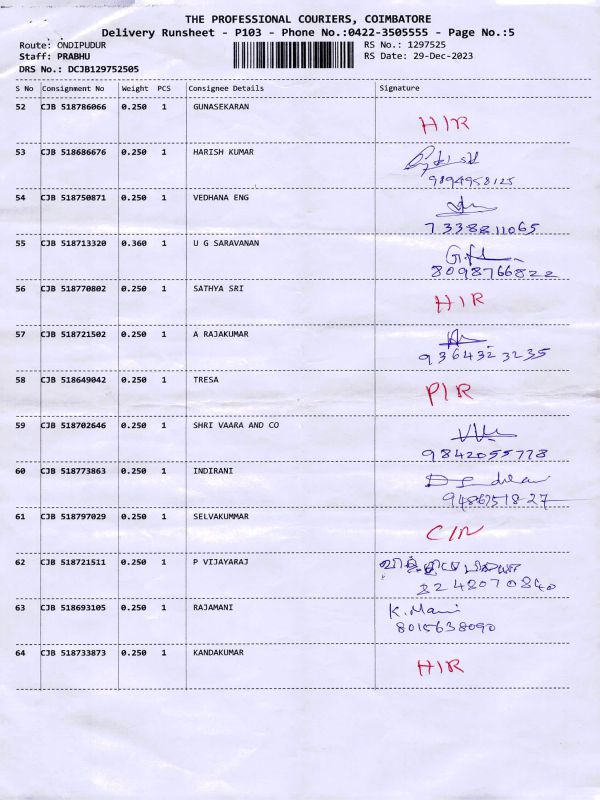 THE PROFESSIONAL COURIERS, COIMBATORE
Delivery Runsheet - P103 - Phone No.:0422-3505555 - Page No.:5
Route: ONDIPUDUR RS No.: 1297525
Staff: PRABHU RS Date: 29-Dec-2023
DRS No.: DCJB129752505
S No Consignment No Weight PCS Consignee Details Signature
52 CJB 518786066 0.250 1 GUNASEKARAN
HIR
53 CJB 518686676 0.250 1 HARISH KUMAR
9894958125
54 CJB 518750871 0.250 1 VEDHANA ENG
7338811065
55 CJB 518713320 0.360 1 U G SARAVANAN
8098766822
56 CJB 518770802 0.250 1 SATHYA SRI
HIR
57 CJB 518721502 0.250 1 A RAJAKUMAR
9364323235
58 CJB 518649042 0.250 1 TRESA
PIR
59 CJB 518702646 0.250 1 SHRI VAARA AND CO
9842055778
60 CJB 518773863 0.250 1 INDIRANI
9486751827
61 CJB 518797029 0.250 1 SELVAKUMMAR
CIN
62 CJB 518721511 0.250 1 P VIJAYARAJ
8248070840
63 CJB 518693105 0.250 1 RAJAMANI
K. Mani
8015638090
64 CJB 518733873 0.250 1 KANDAKUMAR
HIR